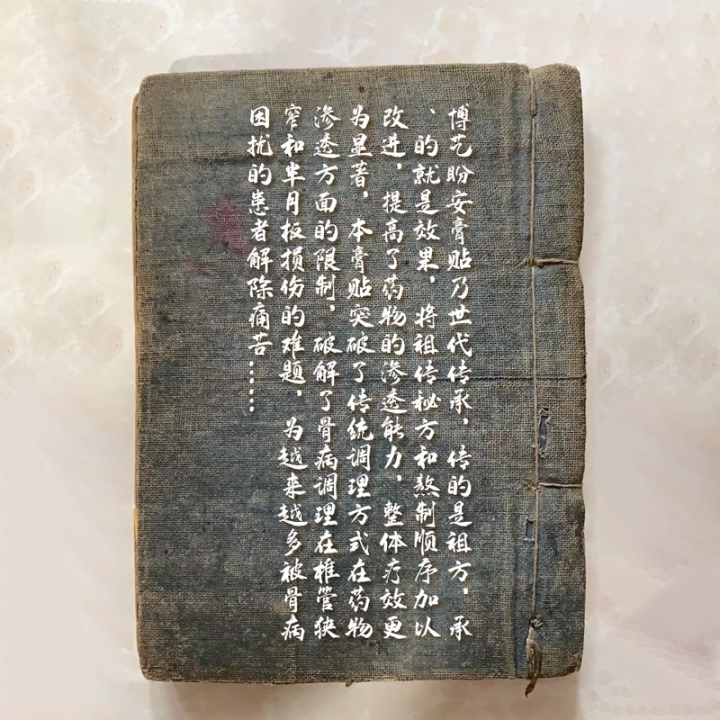 博艺盼安膏贴乃世代传承，传的是祖方，承
、的就是效果，将祖传秘方和熬制顺序加以
改进，提高了药物的渗透能力，整体疗效更
为显著，本膏贴突破了传统调理方式在药物
渗透方面的限制，破解了骨病调理在椎管狭
窄和半月板损伤的难题，为越来越多被骨病
困扰的患者解除痛苦……